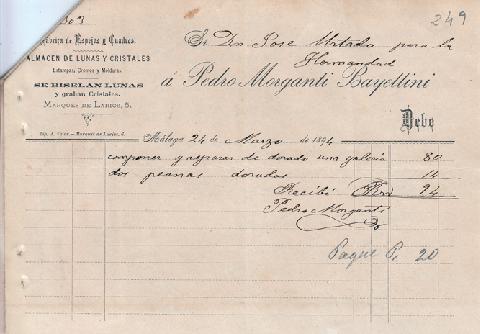 249
Fábrica de Espejos y Cuadros.
ALMACEN DE LUNAS Y CRISTALES
Estampas Cromos y Molduras
SE BISELAN LUNAS
y graban Cristales.
MARQUES DE LARIOS, 5.
Sr Dn Jose Hurtado para la
Hermandad
á Pedro Morganti Bayettini
Debe
Málaga 24 de Marzo de 1894
componer y repasar de dorado una galeria 80
dos peanas doradas 14
Recibí Rvn 94
Pedro Morganti
Pague P. 20